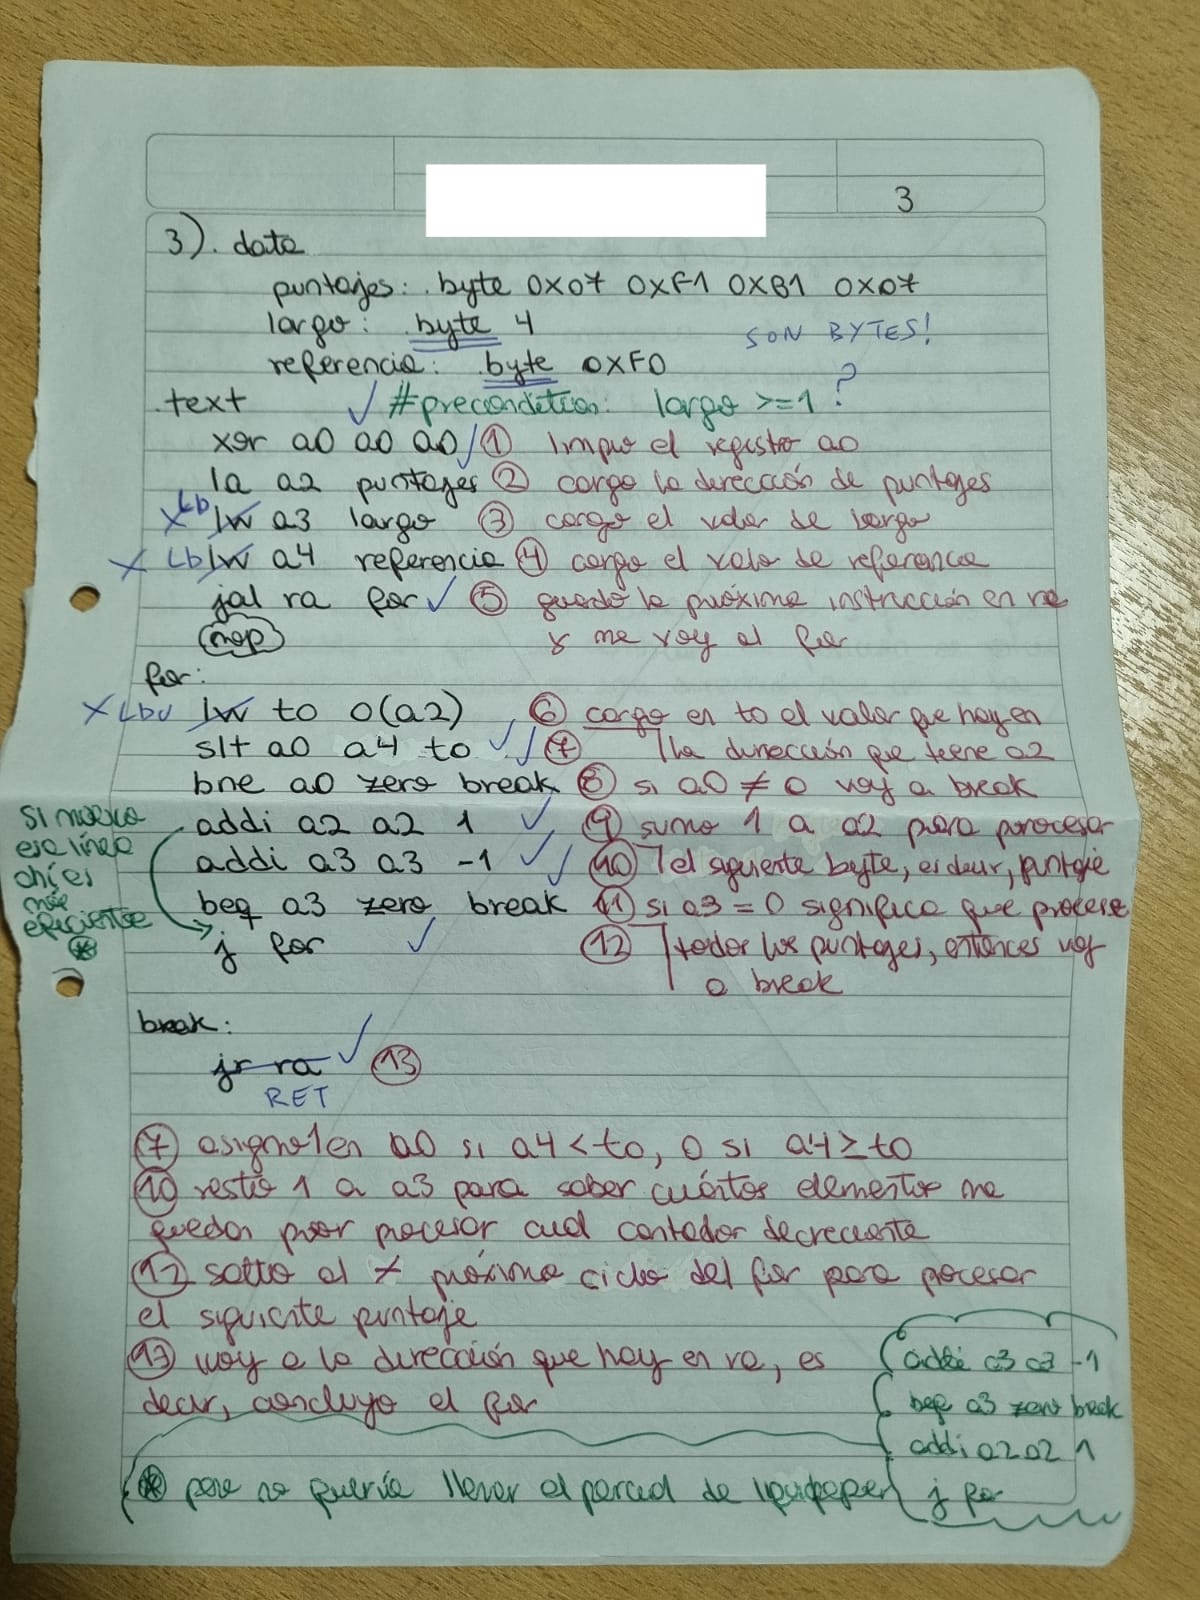 3
3). data
puntajes: .byte 0x07 0xF1 0xB1 0x07
largo: .byte 4
SON BYTES!
referencia: .byte 0xF0
.text ✓ #precondition: largo >=1 ?
xor a0 a0 a0 ① limpio el registro a0
la a2 puntajes ② cargo la dirección de puntajes
X Lb lw a3 largo ③ cargo el valor de largo
X Lb lw a4 referencia ④ cargo el valor de referencia
jal ra for ✓ ⑤ guardo la próxima instrucción en ra
nop y me voy al for
for:
X Lbu lw t0 0(a2) ⑥ cargo en t0 el valor que hay en
slt a0 a4 t0 ✓ ⑦ la dirección que tiene a2
bne a0 zero break ⑧ si a0 ≠ 0 voy a break
addi a2 a2 1 ✓ ⑨ sumo 1 a a2 para procesar
addi a3 a3 -1 ✓ ⑩ el siguiente byte, es decir, puntaje
beq a3 zero break ⑪ si a3 = 0 significa que procesé
j for ✓ ⑫ todos los puntajes, entonces voy
a break
esa línea
ahí es
más
eficiente
⊛
break:
jr ra ✓ ⑬
RET
⑦ asigno 1 en a0 si a4 < t0, 0 si a4 ≥ t0
⑩ resto 1 a a3 para saber cuántos elementos me
quedan por procesar cual contador decreciente
⑫ salto al próximo ciclo del for para procesar
el siguiente puntaje
⑬ voy a la dirección que hay en ra, es
decir, concluyo el for
addi a3 a3 -1
beq a3 zero break
addi a2 a2 1
j for
⊛ pero no quería llenar el parcial de liquidpaper